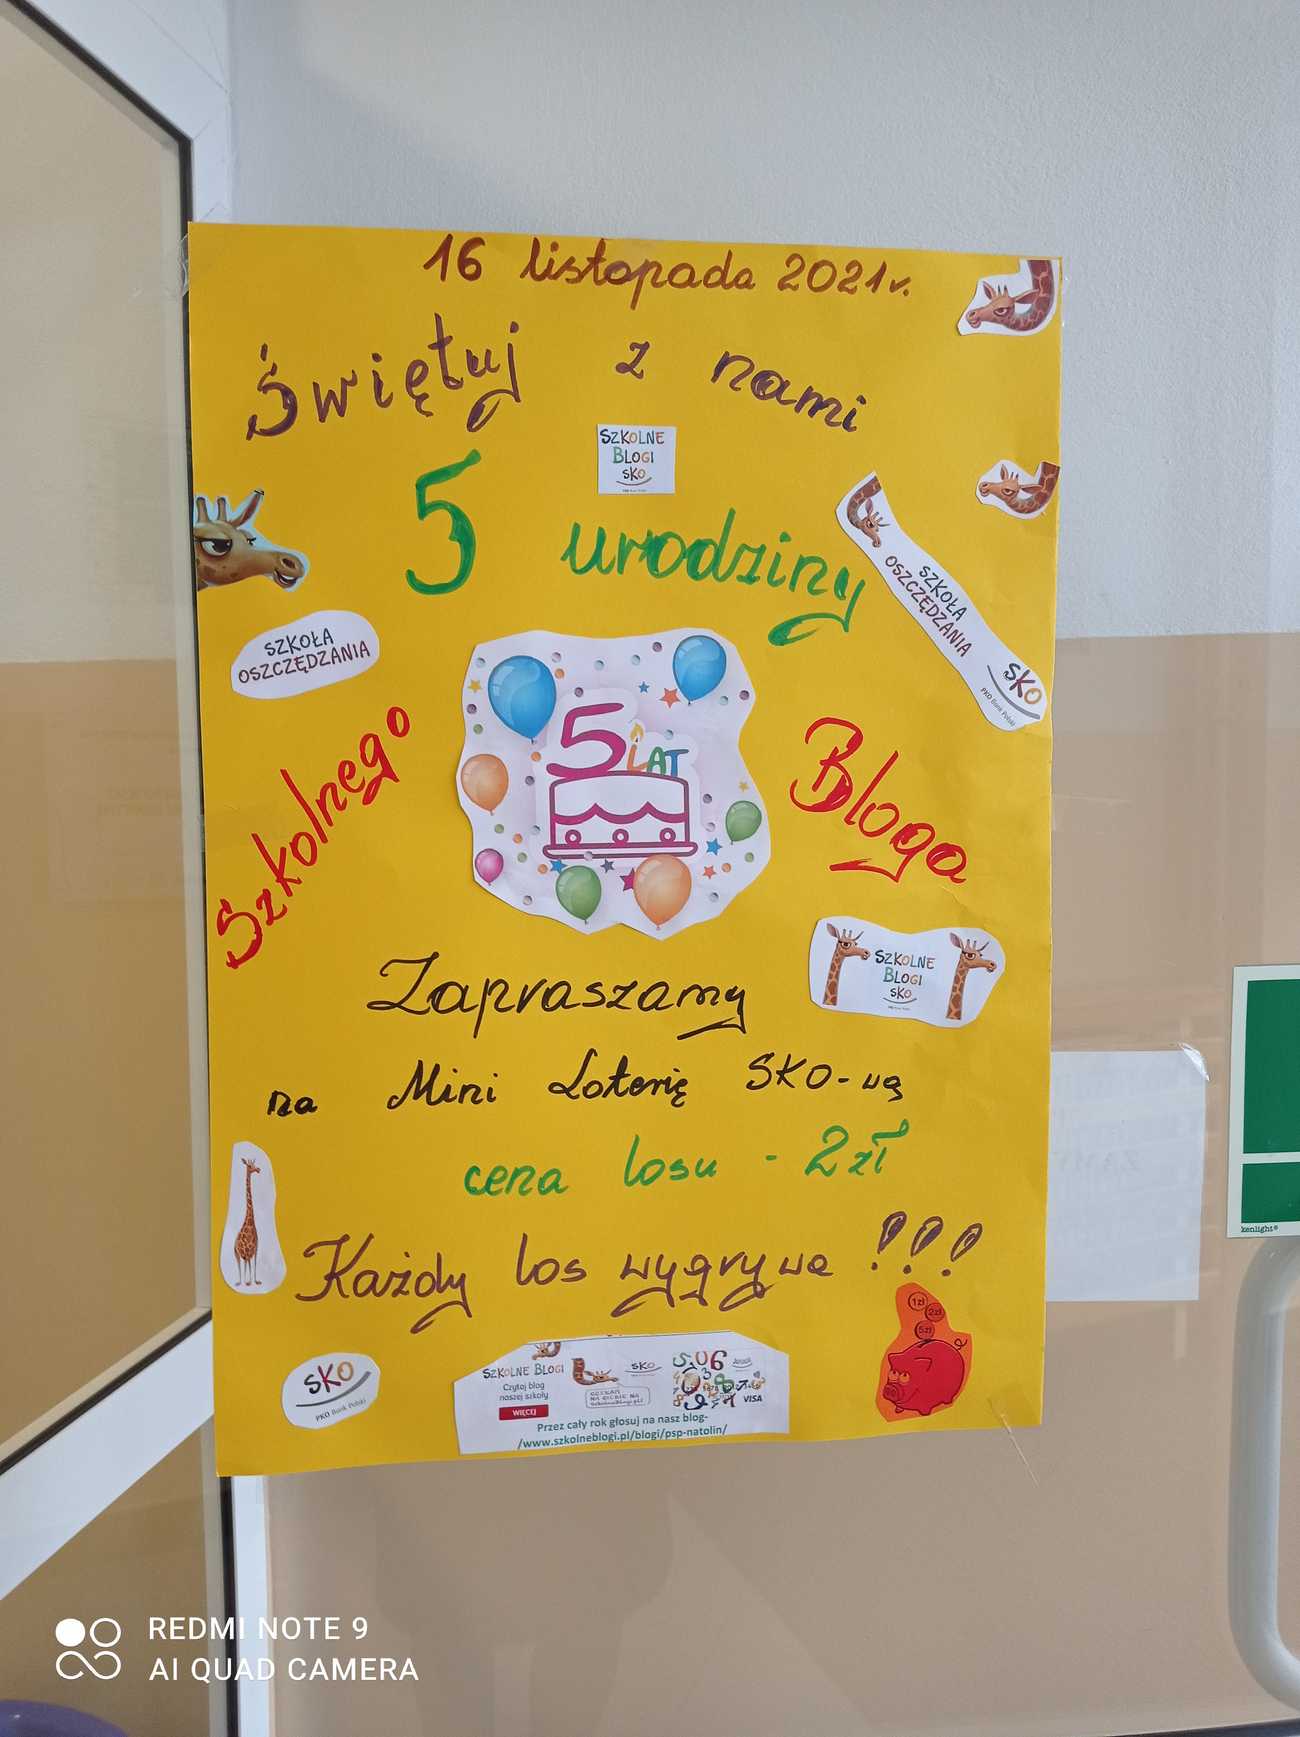 16 listopada 2021r.
Świętuj z nami
SZKOLNE
BLOGI
SKO
5 urodziny
SZKOŁA
OSZCZĘDZANIA
SZKOŁA
OSZCZĘDZANIA
SKO
PKO Bank Polski
5 LAT
Szkolnego Bloga
SZKOLNE
BLOGI
SKO
Zapraszamy
na Mini Loterię SKO-wą
cena losu - 2zł
Każdy los wygrywa !!!
1zł
2zł
5zł
SKO
PKO Bank Polski
SZKOLNE BLOGI
Czytaj blog
naszej szkoły
WIĘCEJ
SKO
VISA
Przez cały rok głosuj na nasz blog-
/www.szkolneblogi.pl/blogi/psp-natolin/
kenlight®
REDMI NOTE 9
AI QUAD CAMERA